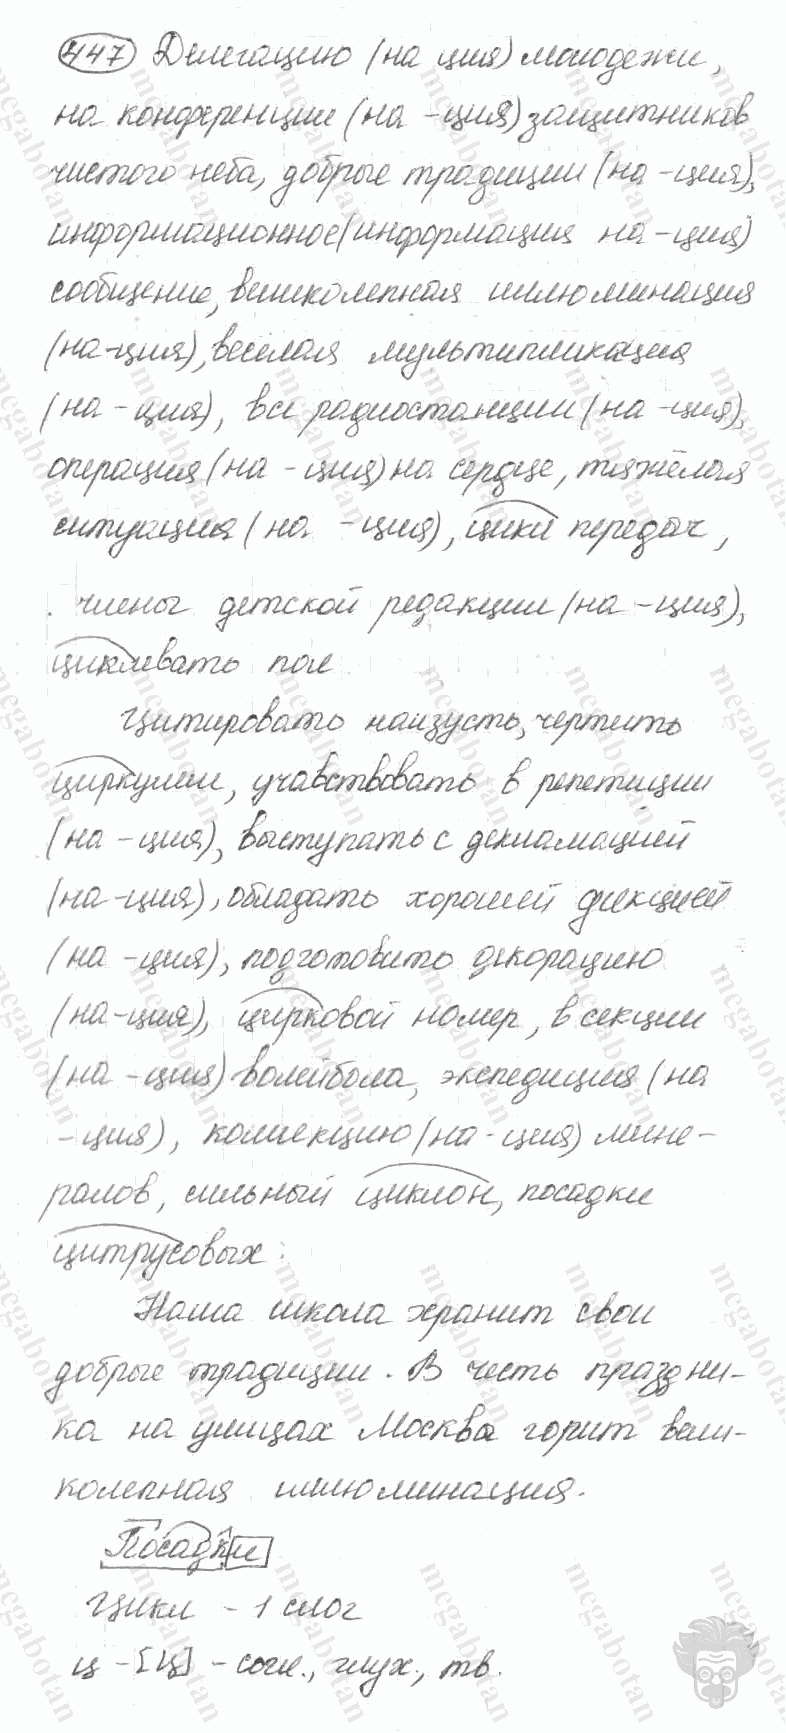 447 Делегацию (на ция) молодежи,
на конференции (на -ция) защитников
чистого неба, добрые традиции (на -ция),
информационное (информация на -ция)
сообщение, великолепная иллюминация
(на -ция), весёлая мультипликация
(на -ция), все радиостанции (на -ция),
операция (на -ция) на сердце, тяжёлая
ситуация (на -ция), цикл передач,
члены детской редакции (на -ция),
циклевать пол
Цитировать наизусть, чертить
циркулем, учавствовать в репетиции
(на -ция), выступать с декламацией
(на -ция), обладать хорошей дикцией
(на -ция), подготовить декорацию
(на -ция), цирковой номер, в секции
(на -ция) волейбола, экспедиция (на
-ция), коллекцию (на -ция) мине-
ралов, сильный циклон, посадки
цитрусовых.
Наша школа хранит свои
добрые традиции. В честь праздни-
ка на улицах Москва горит вели-
колепная иллюминация.
Посадки
Цикл - 1 слог
ц - [ц] - согл., глух., тв.
megabotan